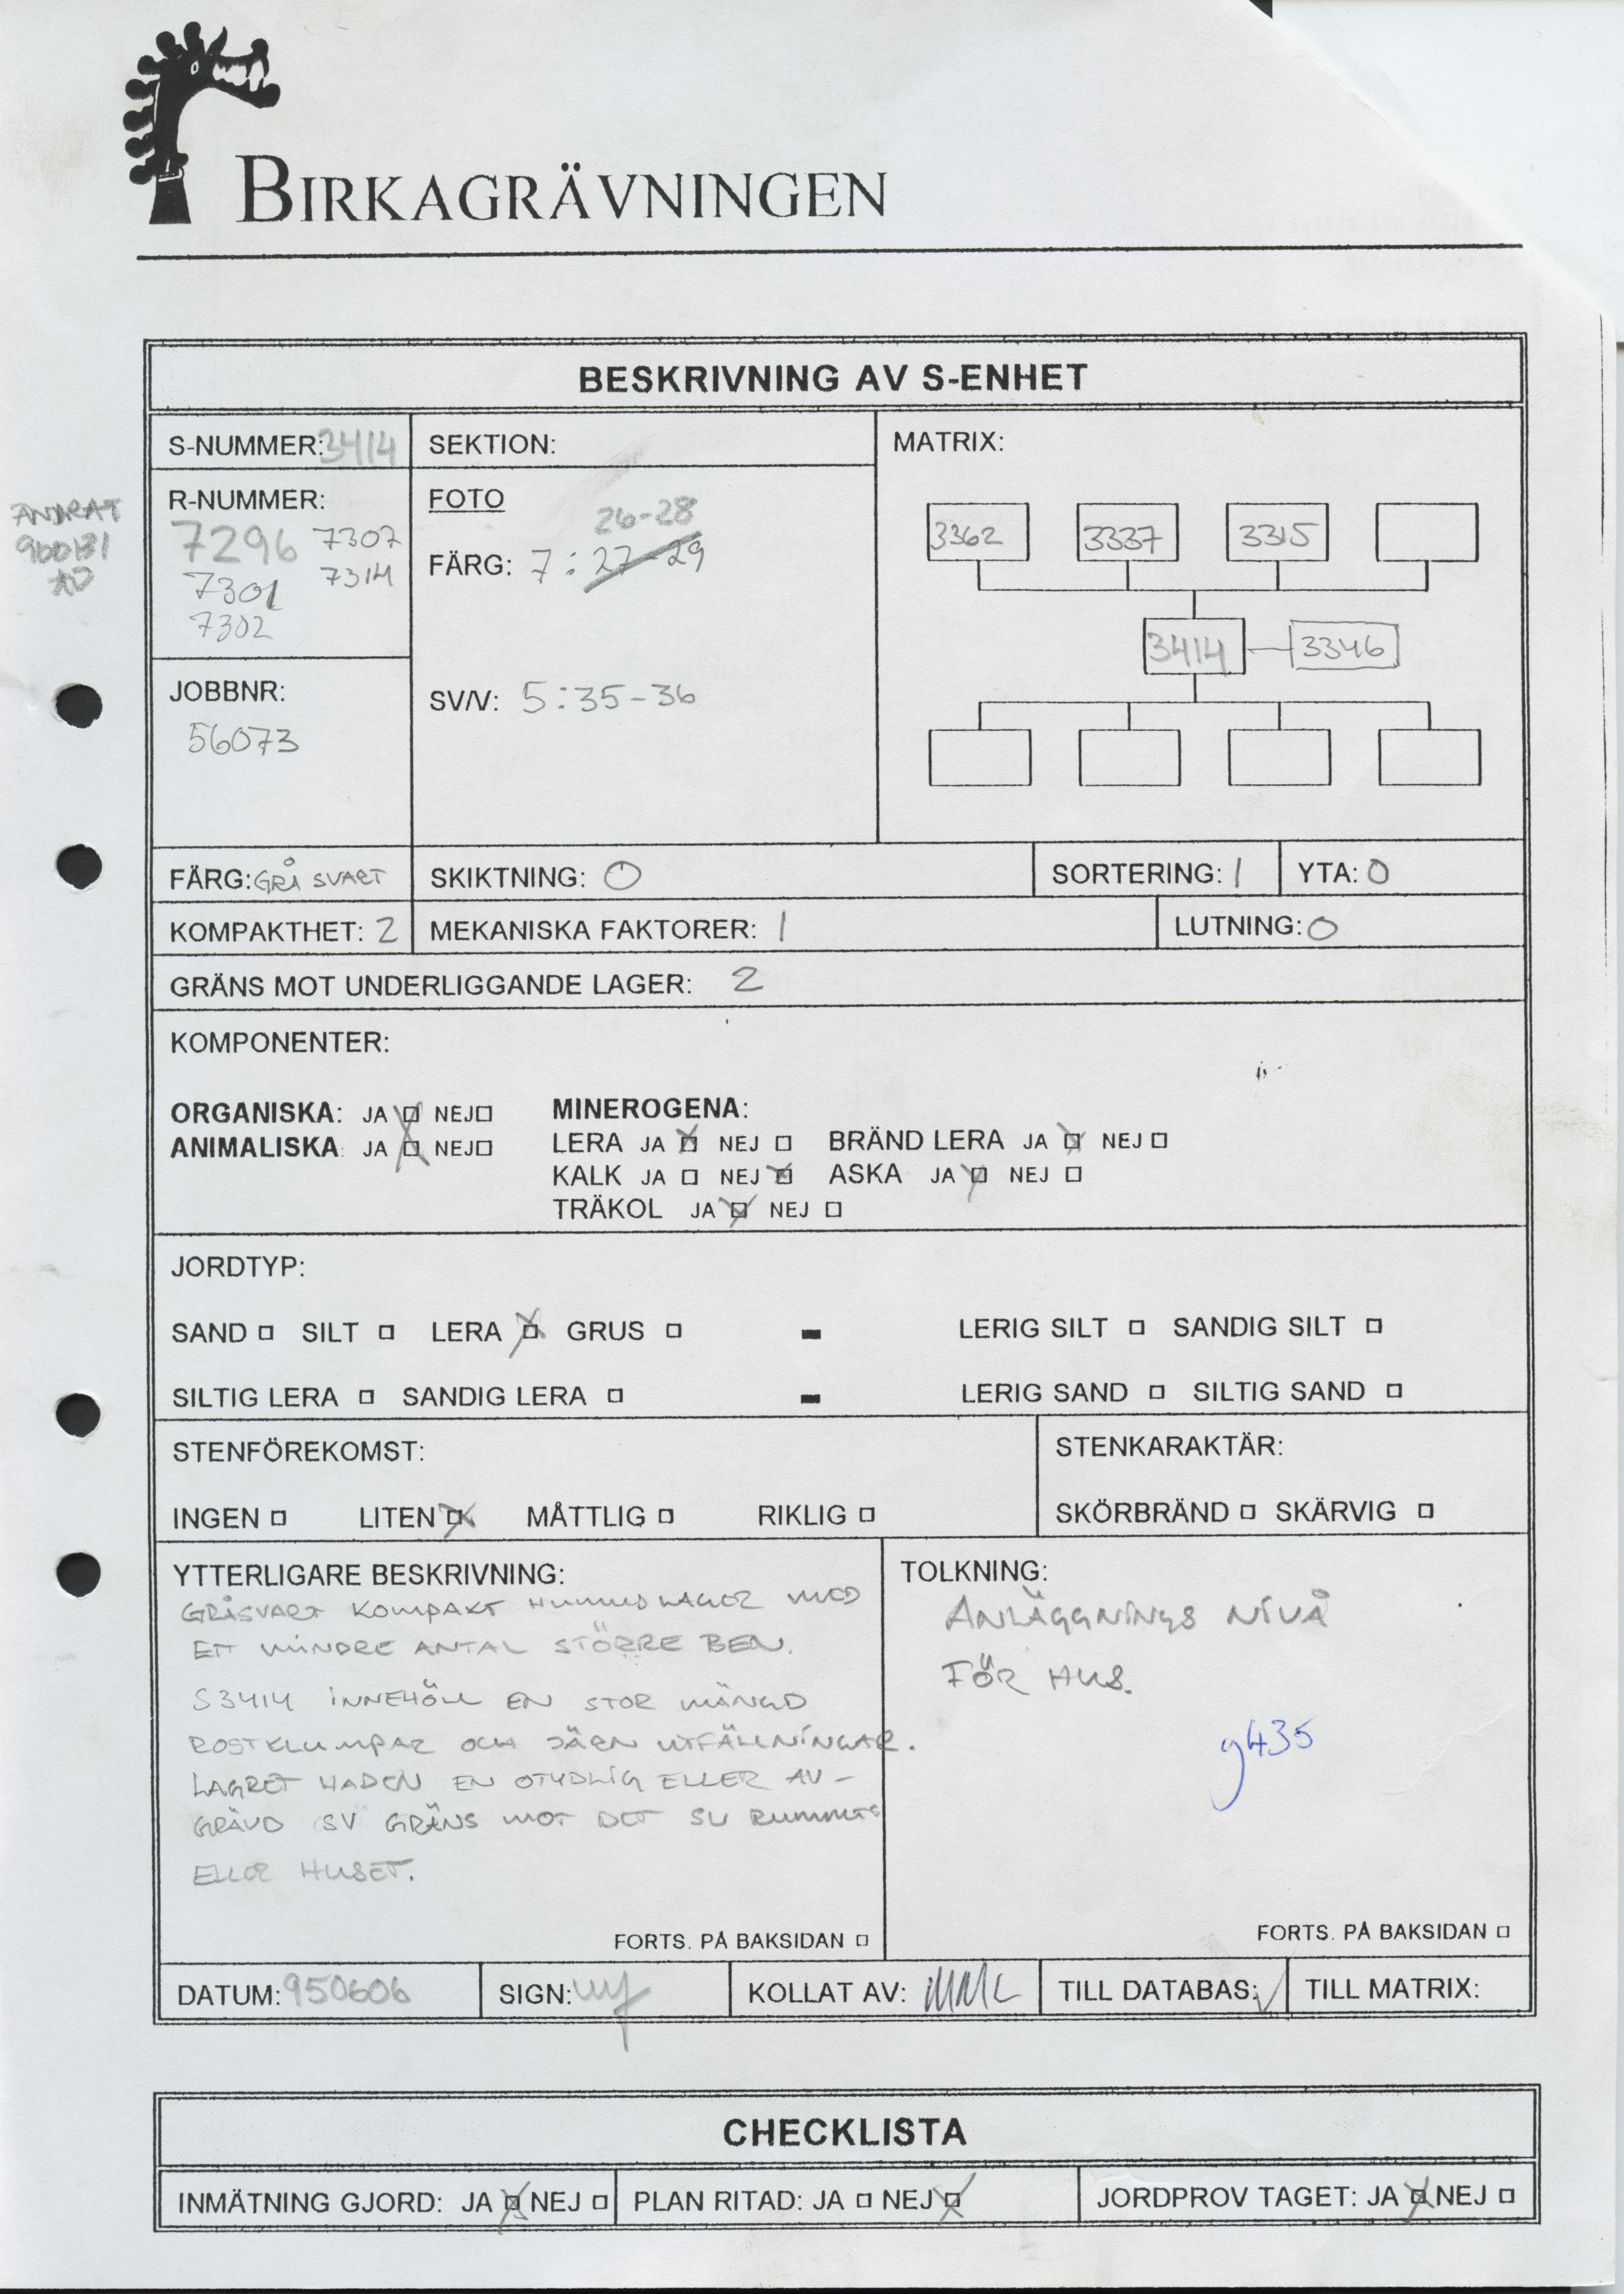 BIRKAGRÄVNINGEN
BESKRIVNING AV S-ENHET
S-NUMMER: 3414
SEKTION:
MATRIX:
ÄNDRAT
960131
R-NUMMER:
7296 7307
7301 7314
7302
FOTO
26-28
FÄRG: 7: 27-29
SV/V: 5:35-36
3362 3337 3315
3414 3346
JOBBNR:
56073
FÄRG: GRÅ SVART SKIKTNING: 0 SORTERING: 1 YTA: 0
KOMPAKTHET: 2 MEKANISKA FAKTORER: 1 LUTNING: 0
GRÄNS MOT UNDERLIGGANDE LAGER: 2
KOMPONENTER:
ORGANISKA: JA NEJ MINEROGENA:
ANIMALISKA: JA NEJ LERA JA NEJ BRÄND LERA JA NEJ
KALK JA NEJ ASKA JA NEJ
TRÄKOL JA NEJ
JORDTYP:
SAND SILT LERA GRUS - LERIG SILT SANDIG SILT
SILTIG LERA SANDIG LERA - LERIG SAND SILTIG SAND
STENFÖREKOMST: STENKARAKTÄR:
INGEN LITEN MÅTTLIG RIKLIG SKÖRBRÄND SKÄRVIG
YTTERLIGARE BESKRIVNING:
GRÅSVART KOMPAKT HUMUSLAGER MED
ETT MINDRE ANTAL STÖRRE BEN.
S3414 INNEHÖLL EN STOR MÄNGD
ROSTKLUMPAR OCH JÄRN UTFÄLLNINGAR.
LAGRET HADEN EN OTYDLIG ELLER AV-
GRÄVD SV GRÄNS MOT DET SV RUMMETS
ELLER HUSET.
FORTS. PÅ BAKSIDAN
TOLKNING:
ANLÄGGNINGS NIVÅ
FÖR HUS.
g435
FORTS. PÅ BAKSIDAN
DATUM: 950606 SIGN: KOLLAT AV: TILL DATABAS: TILL MATRIX:
CHECKLISTA
INMÄTNING GJORD: JA NEJ PLAN RITAD: JA NEJ JORDPROV TAGET: JA NEJ